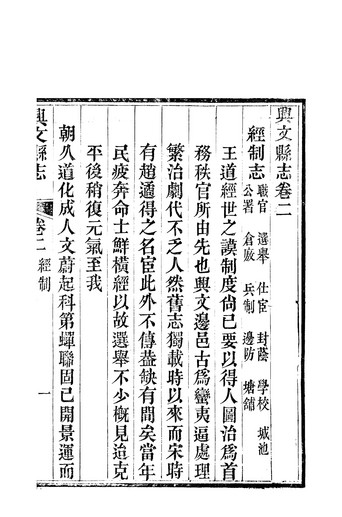 興文縣志卷二
經制志 職官 選舉 仕宦 封蔭 學校 城池
公署 倉廒 兵制 邊防 塘舖
王道經世之謨制度尚已要以得人圖治爲首
務秩官所由先也興文邊邑古爲蠻夷逼處理
繁治劇代不乏人然舊志獨載時以來而宋時
有趙遹得之名宦此外不傳葢缺有間矣當年
民疲奔命士鮮橫經以故選舉不少概見迨克
平後稍復元氣至我
朝久道化成人文蔚起科第蟬聯固已開景運而
興文縣志 卷二 經制 一